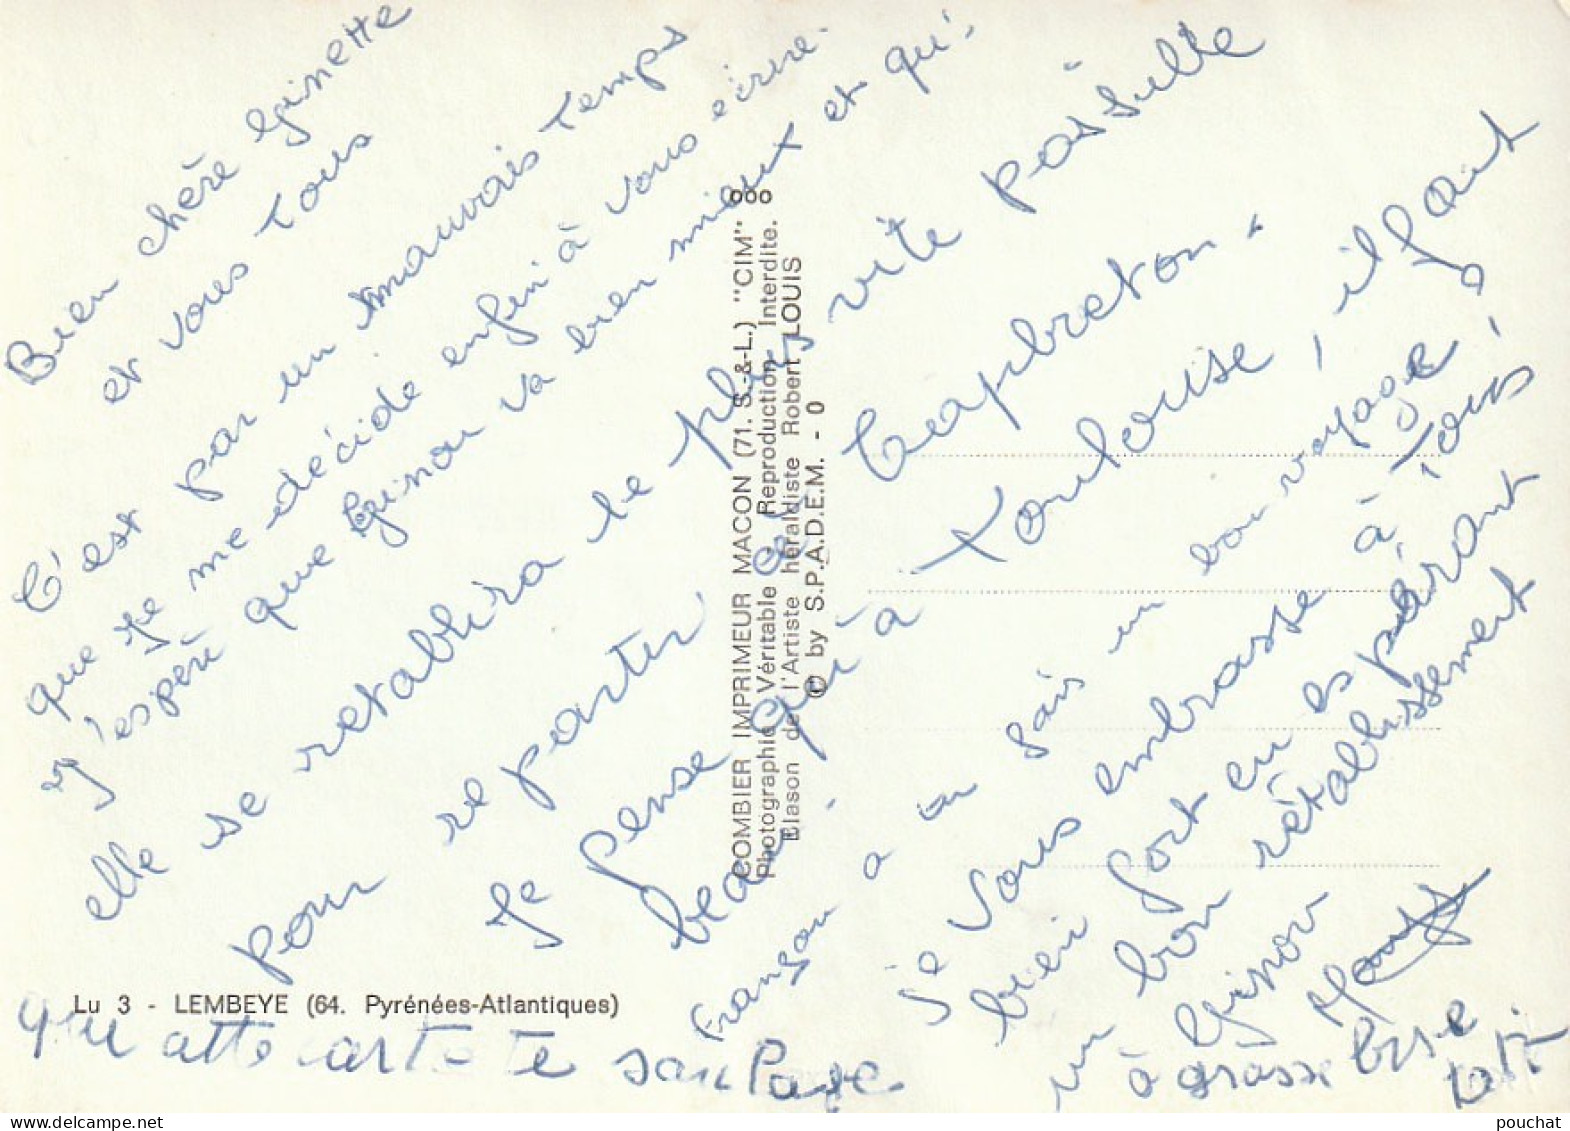 Bien chère Ginette
et vous tous
C'est par un mauvais temps
que je me décide enfin à vous écrire
j'espère que Ginou va bien mieux et qu'
elle se retablira le plus vite possible
pour repartir à Capbreton.
Je pense qu'à Toulouse, il fait
beau.
Françou a un bon voyage
je vous embrasse à Tous,
bien fort en espérant
un bon rétablissement
à Ginou
grosse bise
COMBIER IMPRIMEUR MACON (71. S.-&-L.) "CIM"
Photographie Véritable Reproduction Interdite.
Blason de l'Artiste héraldiste Robert LOUIS
© by S.P.A.D.E.M. - 0
Lu 3 - LEMBEYE (64. Pyrénées-Atlantiques)
que cette carte te
pouchat